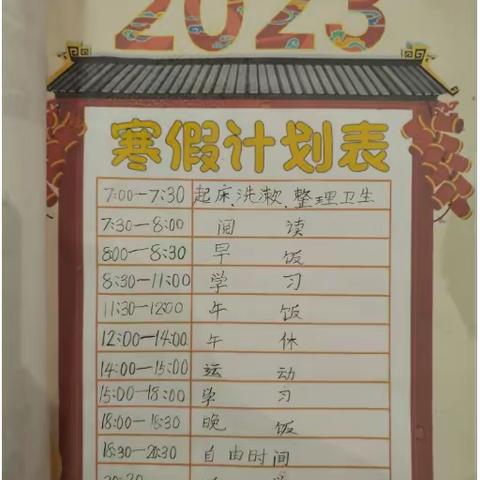 2023
寒假计划表
7:00—7:30 起床、洗漱、整理卫生
7:30—8:00 阅 读
8:00—8:30 早 饭
8:30—11:00 学 习
11:30—12:00 午 饭
12:00—14:00 午 休
14:00—15:00 运 动
15:00—18:00 学 习
18:00—18:30 晚 饭
18:30—20:30 自由时间
20:30